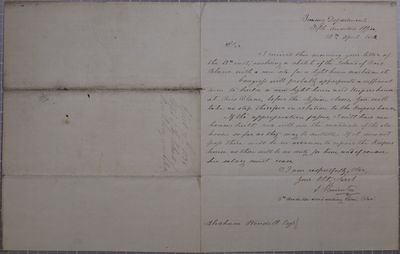 Treasury Department
Fifth Auditor's Office
April
Sir,
I received this morning your letter of
the 18th inst, enclosing a sketch of the Island of
with a new site for a light house marked on it.
Congress will probably appropriate a sufficient
sum to build a new light house and Keepers house
at this Island, before the Session closes. You will
take no step therefore in relation to the Keepers house.
If the appropriation passes, I will have new
houses built, and will use the materials of the old
houses so far as they may be suitable. If it does not
pass there will be no occasion to repair the Keepers
house as there will be no use for him and of course
his salary must cease.
I am respectfully, Sir,
Your Obt. Servt.
S. Pleasonton
5th Auditor and acting Com. Rev.
Abraham Wendell Esqr.